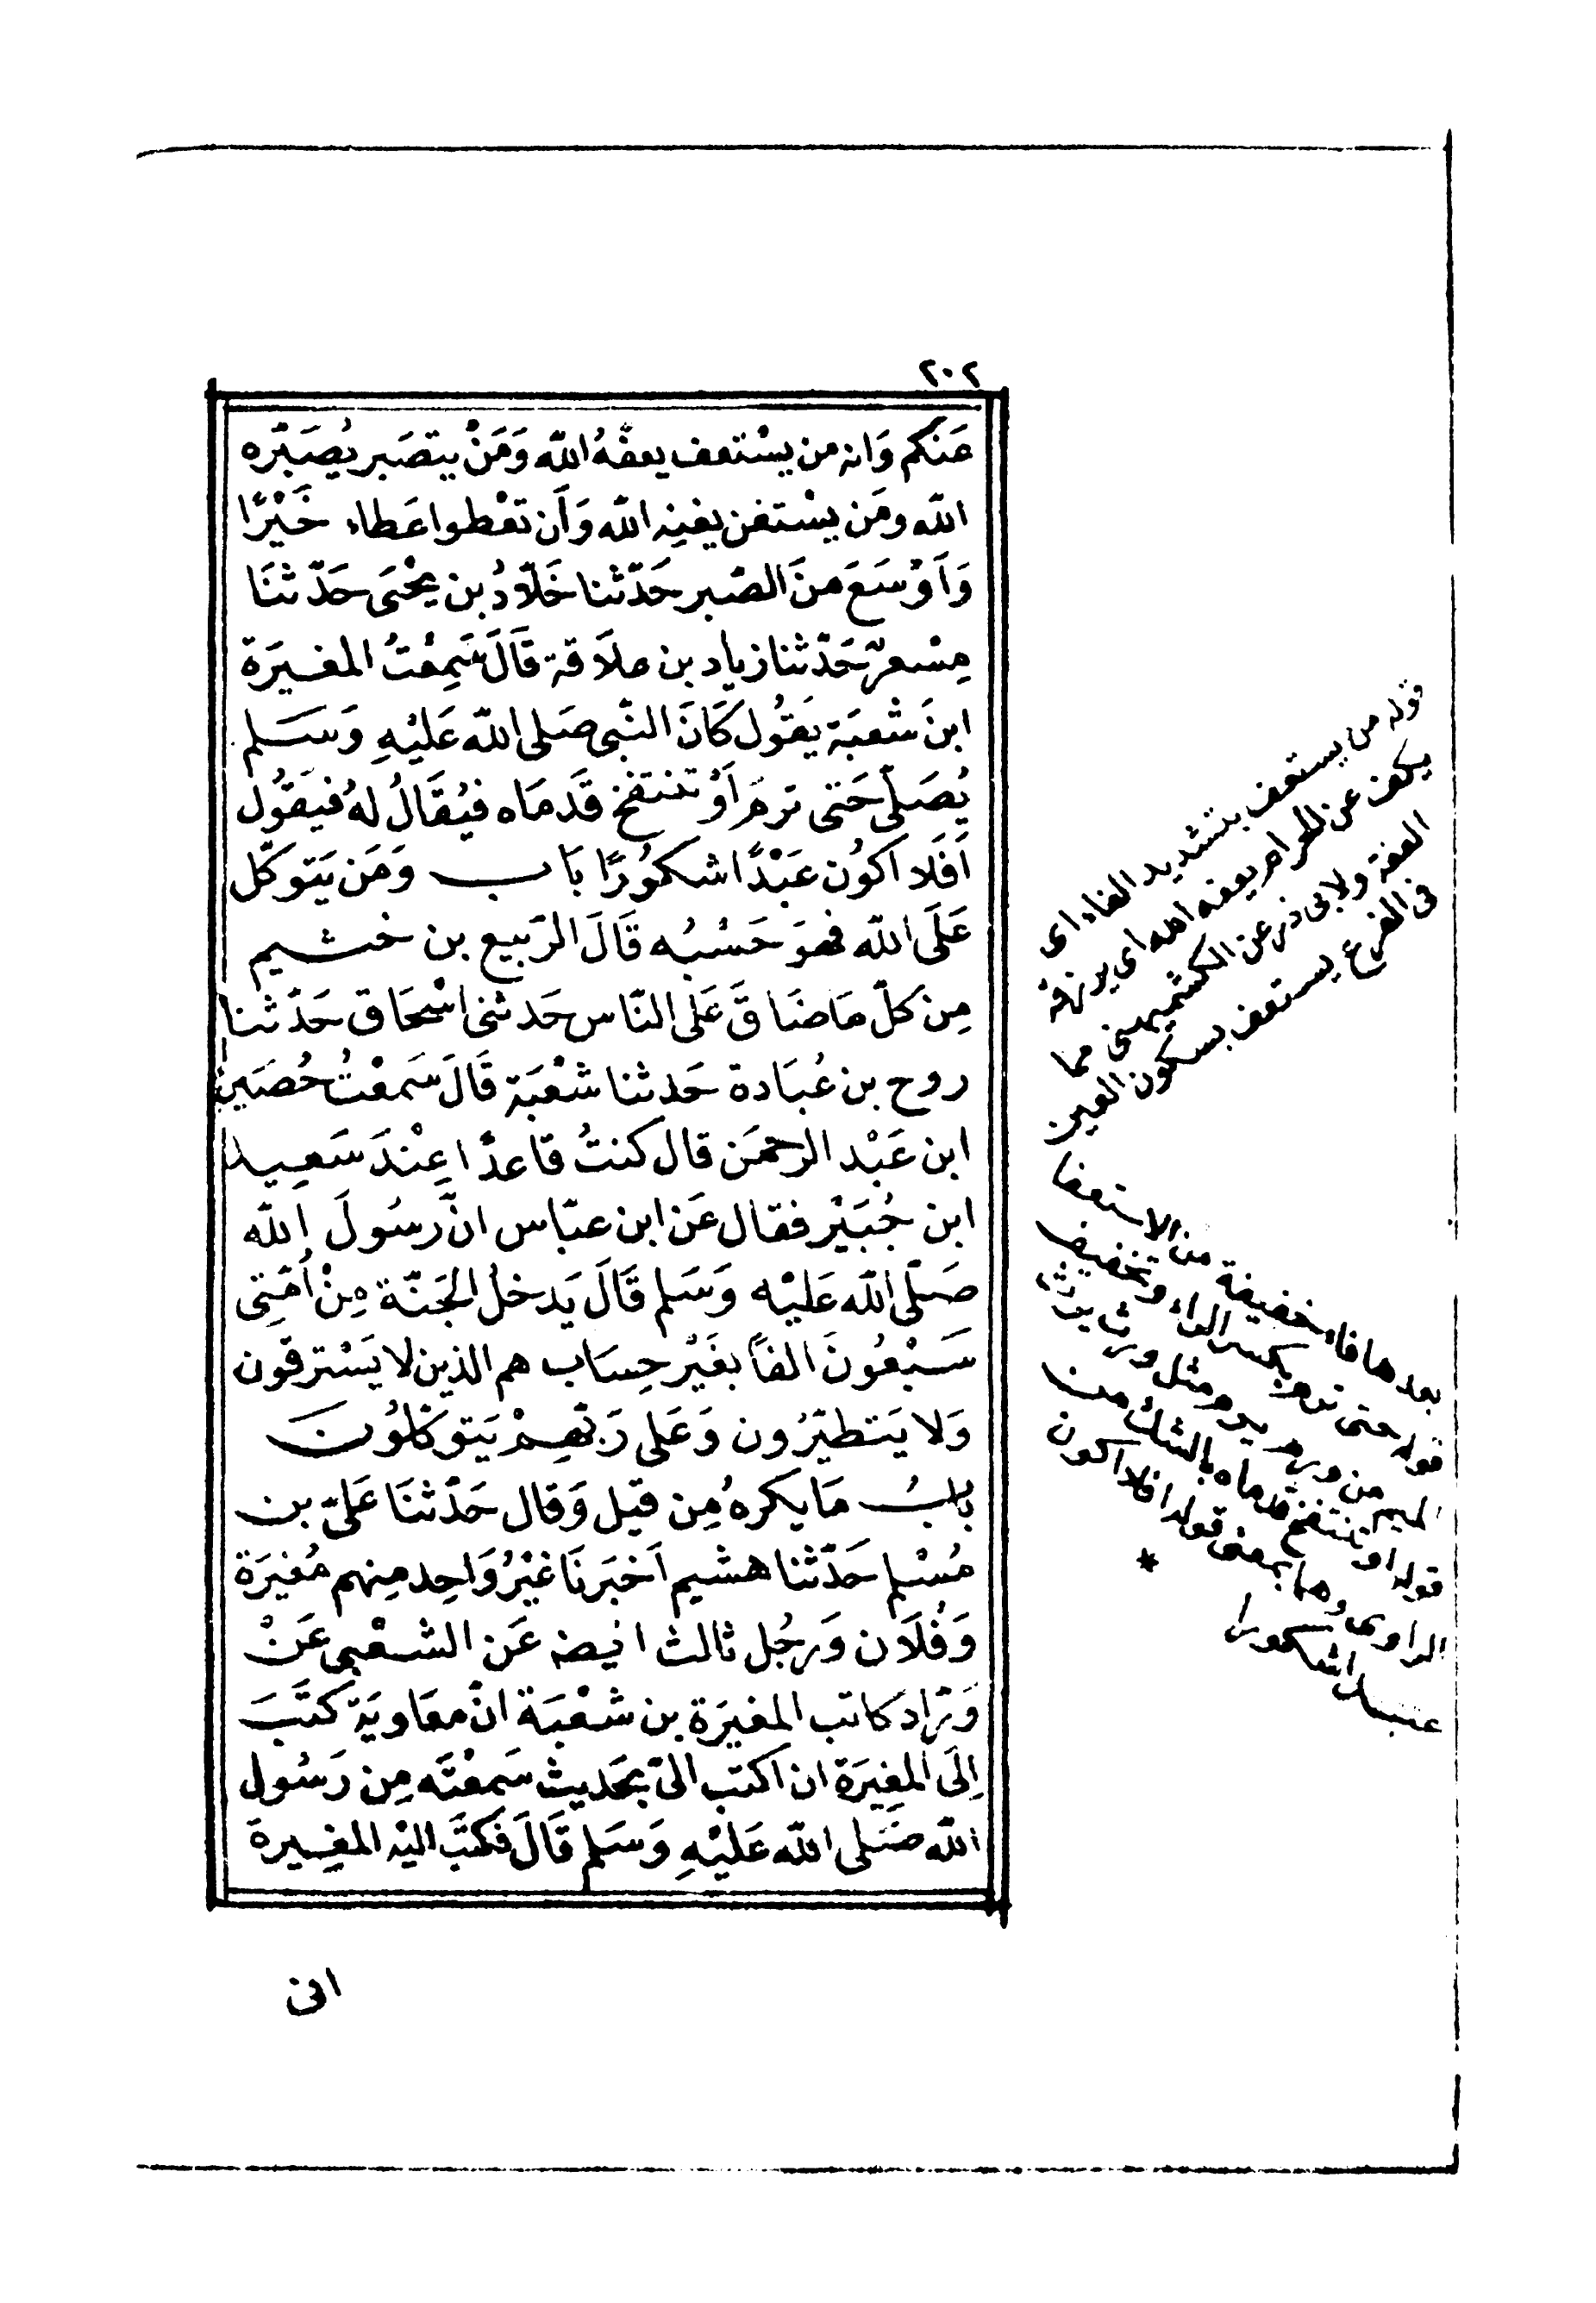 ٢٠٢
عَنكم وَانه من يسْتعف يعفّهُ الله وَمَنْ يتصَبر يُصَبّره
الله ومَن يسْتغن يغنِه الله وَلَن تعْطوا عَطاء خَيْرًا
وَاَوْسَعَ منَ الصّبر حَدّثنا خَلّادُ بن يحْيَى حَدّثنَا
مِسْعرٌ حَدّثنا زياد بن علاَقة قَالَ سَمِعْتُ المغـيرَة
ابنَ شعْبَة يَقُول كَانَ النّبى صَلى الله عَليْهِ وَسَـلم
يُصَلّى حَتى ترمَ اَوْ تنتفخ قَدمَاه فيُقَالُ لهُ فيَقُول
اَفَلا اكُون عَبْدًا شكُورًا بَاب وَمَن يَتَوكّل
عَلَى الله فهوَ حَسْبُه قَالَ الرّبيع بن خثـيم
مِن كلّ مَا ضَاقَ عَلى النّاس حَدثنى اسْحَاق حَدّثنا
روح بن عُبَادة حَدثنا شعْبَة قَالَ سَمعْتُ حُصَين
ابن عَبْد الرحمَن قال كنتُ قاعدًا عِنْدَ سَعِيـد
ابن جُبَيْر فقال عَن ابن عبّاس انّ رسُولَ الله
صَلّى الله عَليْه وَسَلم قَالَ يَدخلُ الجَنّة مِنْ اُمّتِى
سَـبْعُونَ الفاً بغَيْر حِسَاب هم الذين لا يَسْترقون
وَلا يَتطيّرُون وَعَلى رَبّهِـمْ يَتوكّلُونَ
بابُ مَا يكرهُ مِن قيل وَقال حَدّثنَا عَلىّ بن
مُسْلم حَدّثنا هشيم اَخبَرنَا غيْرُ وَاحِد منهم مُغيرَة
وَفُلَان وَرجُل ثالث ايضه عَن الشـعْبى عَنْ
وَرّاد كاتب المغيرَة بن شعْبَة انّ معَاويَة كتَبَ
اِلَى المغِيرَة ان اكتب الىّ بحَديث سَمعْتَه مِن رَسُول
الله صَلى الله عَليْهِ وَسَلم قَالَ فكتَبَ اليْه المغِـيرة
انى
قوله من يستعف بتشديد الفاء اى
يكف عن الحرام يعفه الله اى يرزقه
العفة ولابى ذر عن الكشميهنى مما
فى الفرع يستعف بسكون العين
بعدها فاء خفيفة من الاستعفا
قوله حتى ترم بكسر الراء وتخفيف
الميم من ورم يرم مثل ورث يرث
قوله او تنتفخ قدماه بالشك من
الراوى وهما بمعنى قوله افلا اكون
عبدا شكورا *